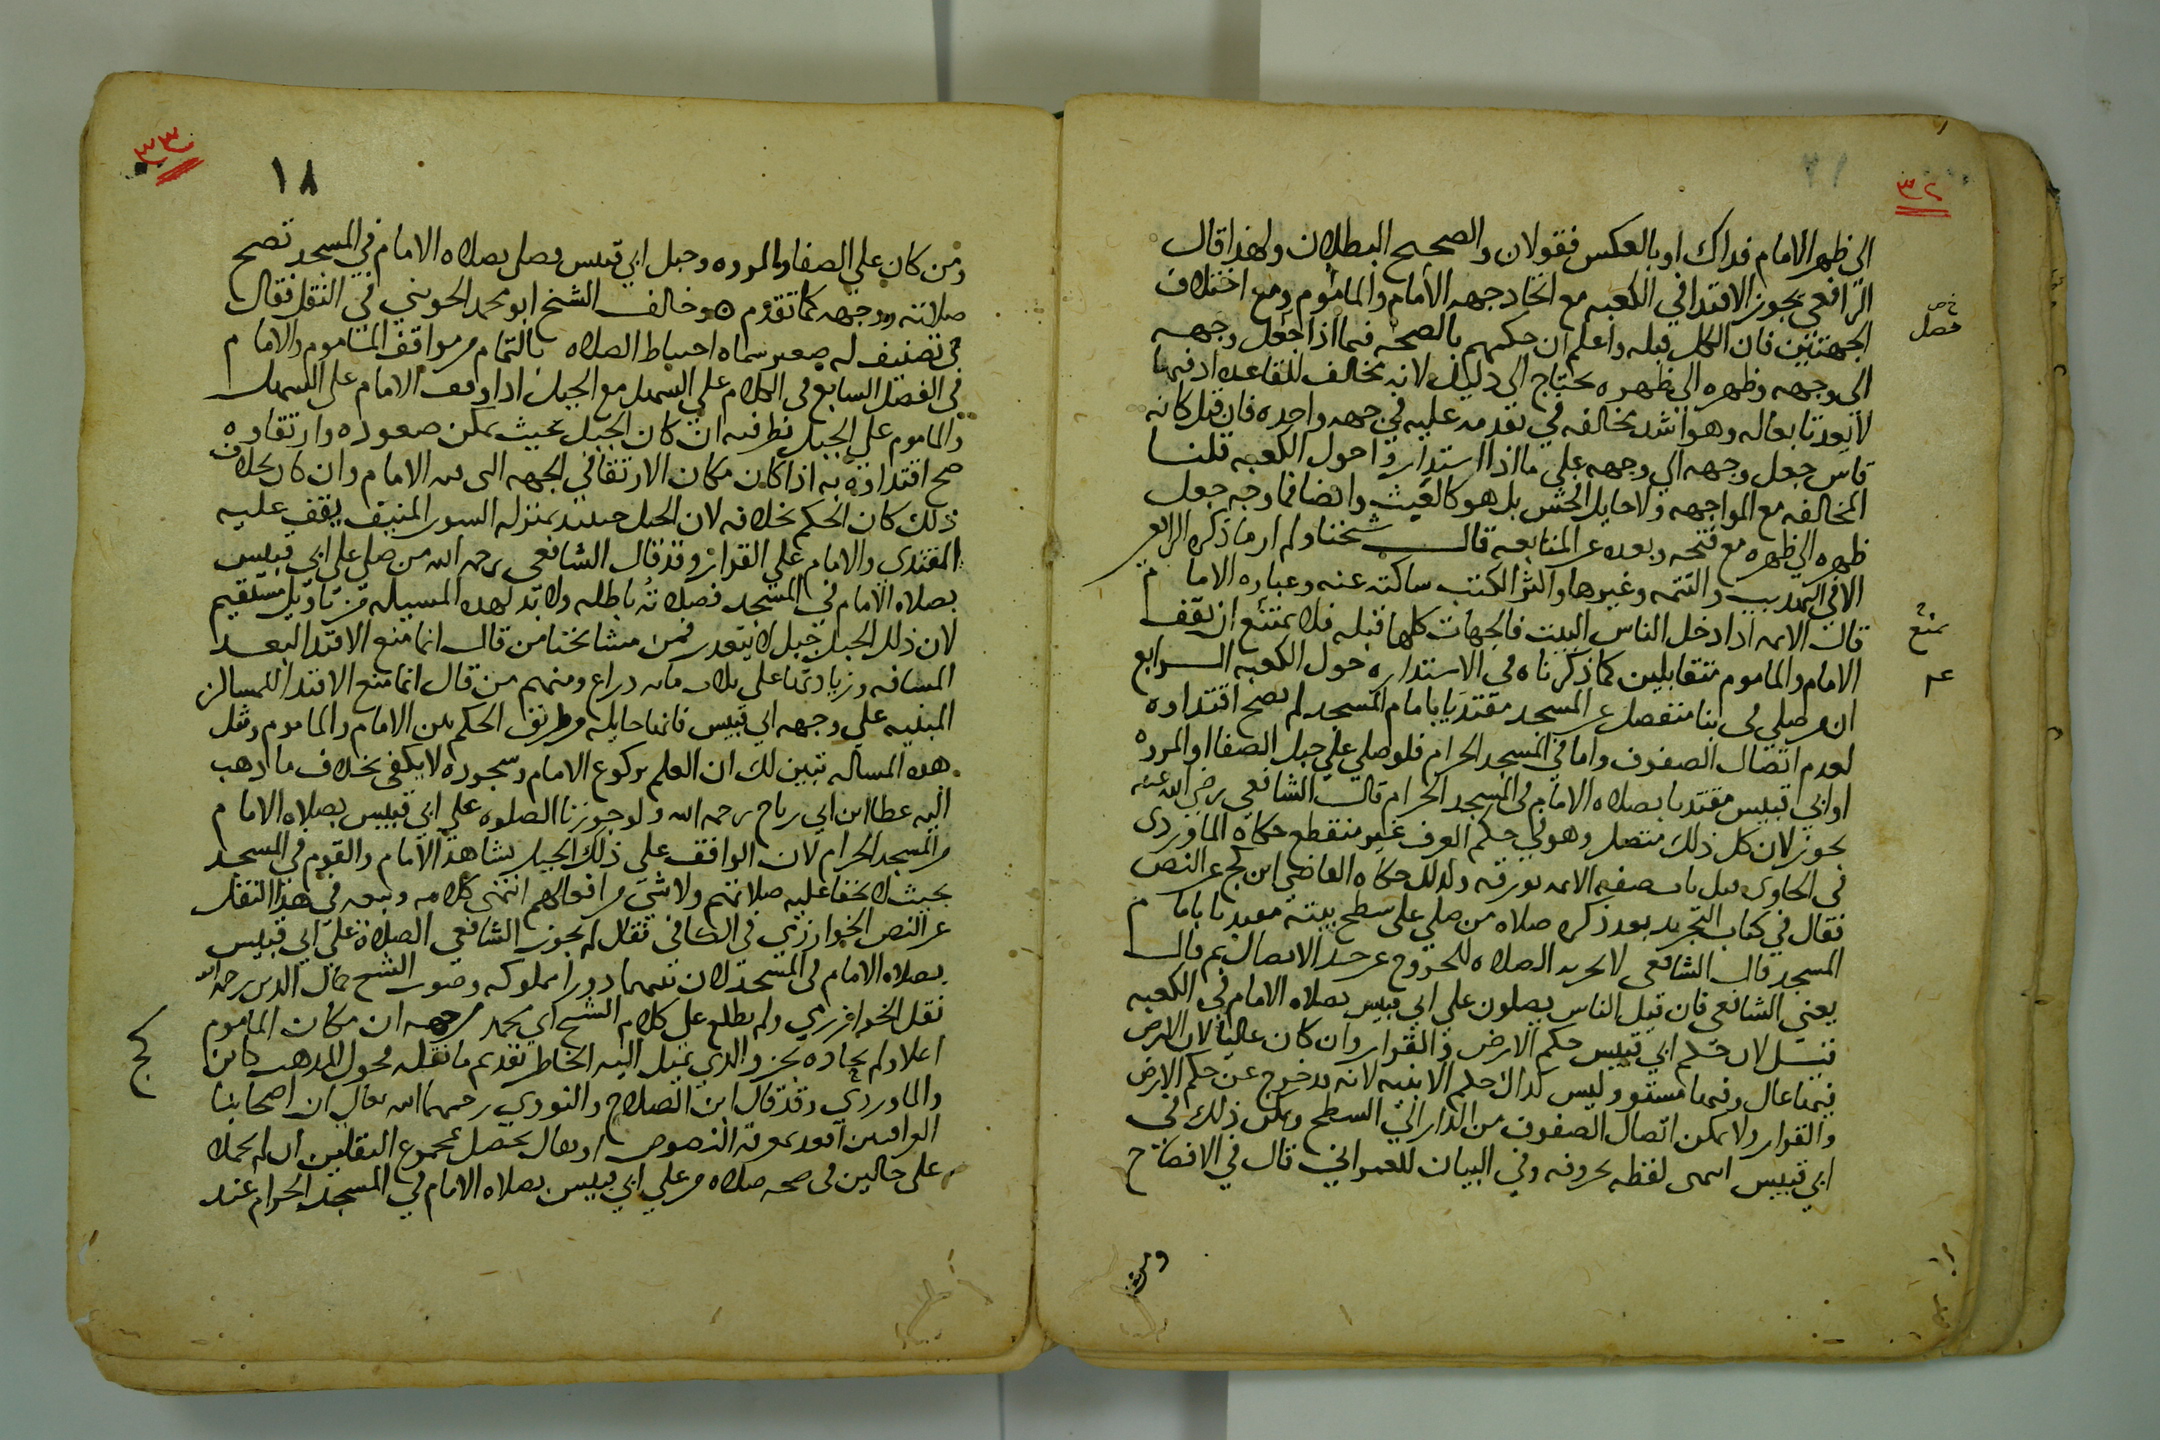 ٣٢
الى ظهر الامام فذاك او بالعكس فقولان والصحيح البطلان ولهذا قال
الرافعي يجوز الاقتدا في الكعبه مع اتحاد جهه الامام والماموم ومع اختلاف
الجهتين فان الكل قبله واعلم ان حكمهم بالصحه فيما اذا جعل وجهه
الى وجهه وظهره الى ظهره يحتاج الى دليل لانه مخالف للقاعده اذ فيهما
لا يعد تابعا له وهو اشد مخالفه في تقدمه عليه في جهه واحده فان قيل كانه
قاس جعل وجهه الى وجهه على ما اذا استداروا حول الكعبه قلنا
المخالفه مع المواجهه ولا حايل الحش بل هو كالعيث وايضا فما وجه جعل
ظهره الى ظهره مع قبحه وبعده عن المتابعه قال شيخنا ولم ار ما ذكره الرافعي
الا في التهذيب والتتمه وغيرها واكثر الكتب ساكته عنه وعباره الامام
قال الايمه اذا دخل الناس البيت فالجهات كلها قبله فلا يمتنع ان يقف
الامام والماموم متقابلين كما ذكرناه في الاستداره حول الكعبه الرابع
انه لو صلى في بنا منفصل عن المسجد مقتديا بامام المسجد لم يصح اقتداوه
لعدم اتصال الصفوف واما في المسجد الحرام فلو صلى على جبل الصفا او المروه
او ابي قبيس مقتديا بصلاه الامام في المسجد الحرام قال الشافعي رضي الله عنه
يجوز لان كل ذلك متصل وهو في حكم العرف غير منقطع حكاه الماوردى
في الحاوى قبل باب صفه الايمه بورقه وكذلك حكاه القاضي ابن كج عن النص
فقال في كتاب التجريد بعد ذكره صلاه من صلي على سطح بيته مقتديا بامام
المسجد قال الشافعي لا تجزيه الصلاه للخروج عن حد الاتصال ثم قال
يعني الشافعي فان قيل الناس يصلون على ابي قبيس بصلاه الامام في الكعبه
قيل لان حكم ابي قبيس حكم الارض والقرار وان كان عاليا لان الارض
فيها عال وفيها مستو وليس كذلك حكم الابنيه لانه يخرج عن حكم الارض
والقرار ولا يمكن اتصال الصفوف من الدار الى السطح ويمكن ذلك في
ابي قبيس انتهى لفظه بحروفه وفي البيان للعمراني قال في الافصاح
ومن
فصل
يمتنع
٣٣
١٨
ومن كان على الصفا والمروه وجبل ابي قبيس يصلي بصلاه الامام في المسجد تصح
صلاته ووجهه كما تقدم ه وخالف الشيخ ابو محمد الجويني في النقل فقال
في تصنيف له صغير سماه احتياط الصلاه بالتمام من مواقف الماموم والامام
في الفصل السابع في الكلام على السهل مع الجبل اذا وقف الامام على السهل
والماموم على الجبل نظر فيه ان كان الجبل بحيث يمكن صعوده وارتقاوه
صح اقتداوه به اذا كان مكان الارتقا في الجهه التى بين الامام وان كان بخلاف
ذلك كان الحكم بخلافه لان الجبل حينئذ بمنزله السور المنيف يقف عليه
المقتدي والامام على القرار وقد قال الشافعي رحمه الله من صلى على ابي قبيس
بصلاه الامام في المسجد فصلاته باطله ولا بد لهذه المسيله من تاويل مستقيم
لان ذلك الجبل جبل لا يتعذر فمن مشايخنا من قال انما منع الاقتدا لبعد
المسافه وزيادتها على ثلاث مايه ذراع ومنهم من قال انما منع الاقتدا للمساكن
المبنيه على وجهه ابي قبيس فانها حايله وطريق الحكم بين الامام والماموم ومثل
هذه المساله تبين لك ان العلم بركوع الامام وسجوده لا يكفي بخلاف ما ذهب
اليه عطا ابن ابي رباح رحمه الله ولو جوزنا الصلوه على ابي قبيس بصلاه الامام
من المسجد الحرام لان الواقف على ذلك الجبل يشاهد الامام والقوم في المسجد
بحيث لا يخفا عليه صلاتهم ولا شي من افعالهم انتهى كلامه وتبعه في هذا النقل
عن النص الخوارزمي في الكافي فقال لم يجوز الشافعي الصلاة على ابي قبيس
بصلاه الامام في المسجد لان بينهما دورا مملوكه وصوب الشيخ جمال الدين رحمه الله
نقل الخوارزمي ولم يطلع على كلام الشيخ ابي محمد من جهه ان مكان الماموم
اعلا ولم يحاذه بجزو والذي يميل اليه الخاطر تقديم ما نقله فحول المذهب كابن
كج
والماوردي وقد قال ابن الصلاح والنووي رحمهما الله تعالى ان اصحابنا
العراقيين اقعد بمعرفه النصوص او يقال يحصل مجموع النقلين ان لم يحملا
على حالين في صحه صلاه من علي ابي قبيس بصلاه الامام في المسجد الحرام عند